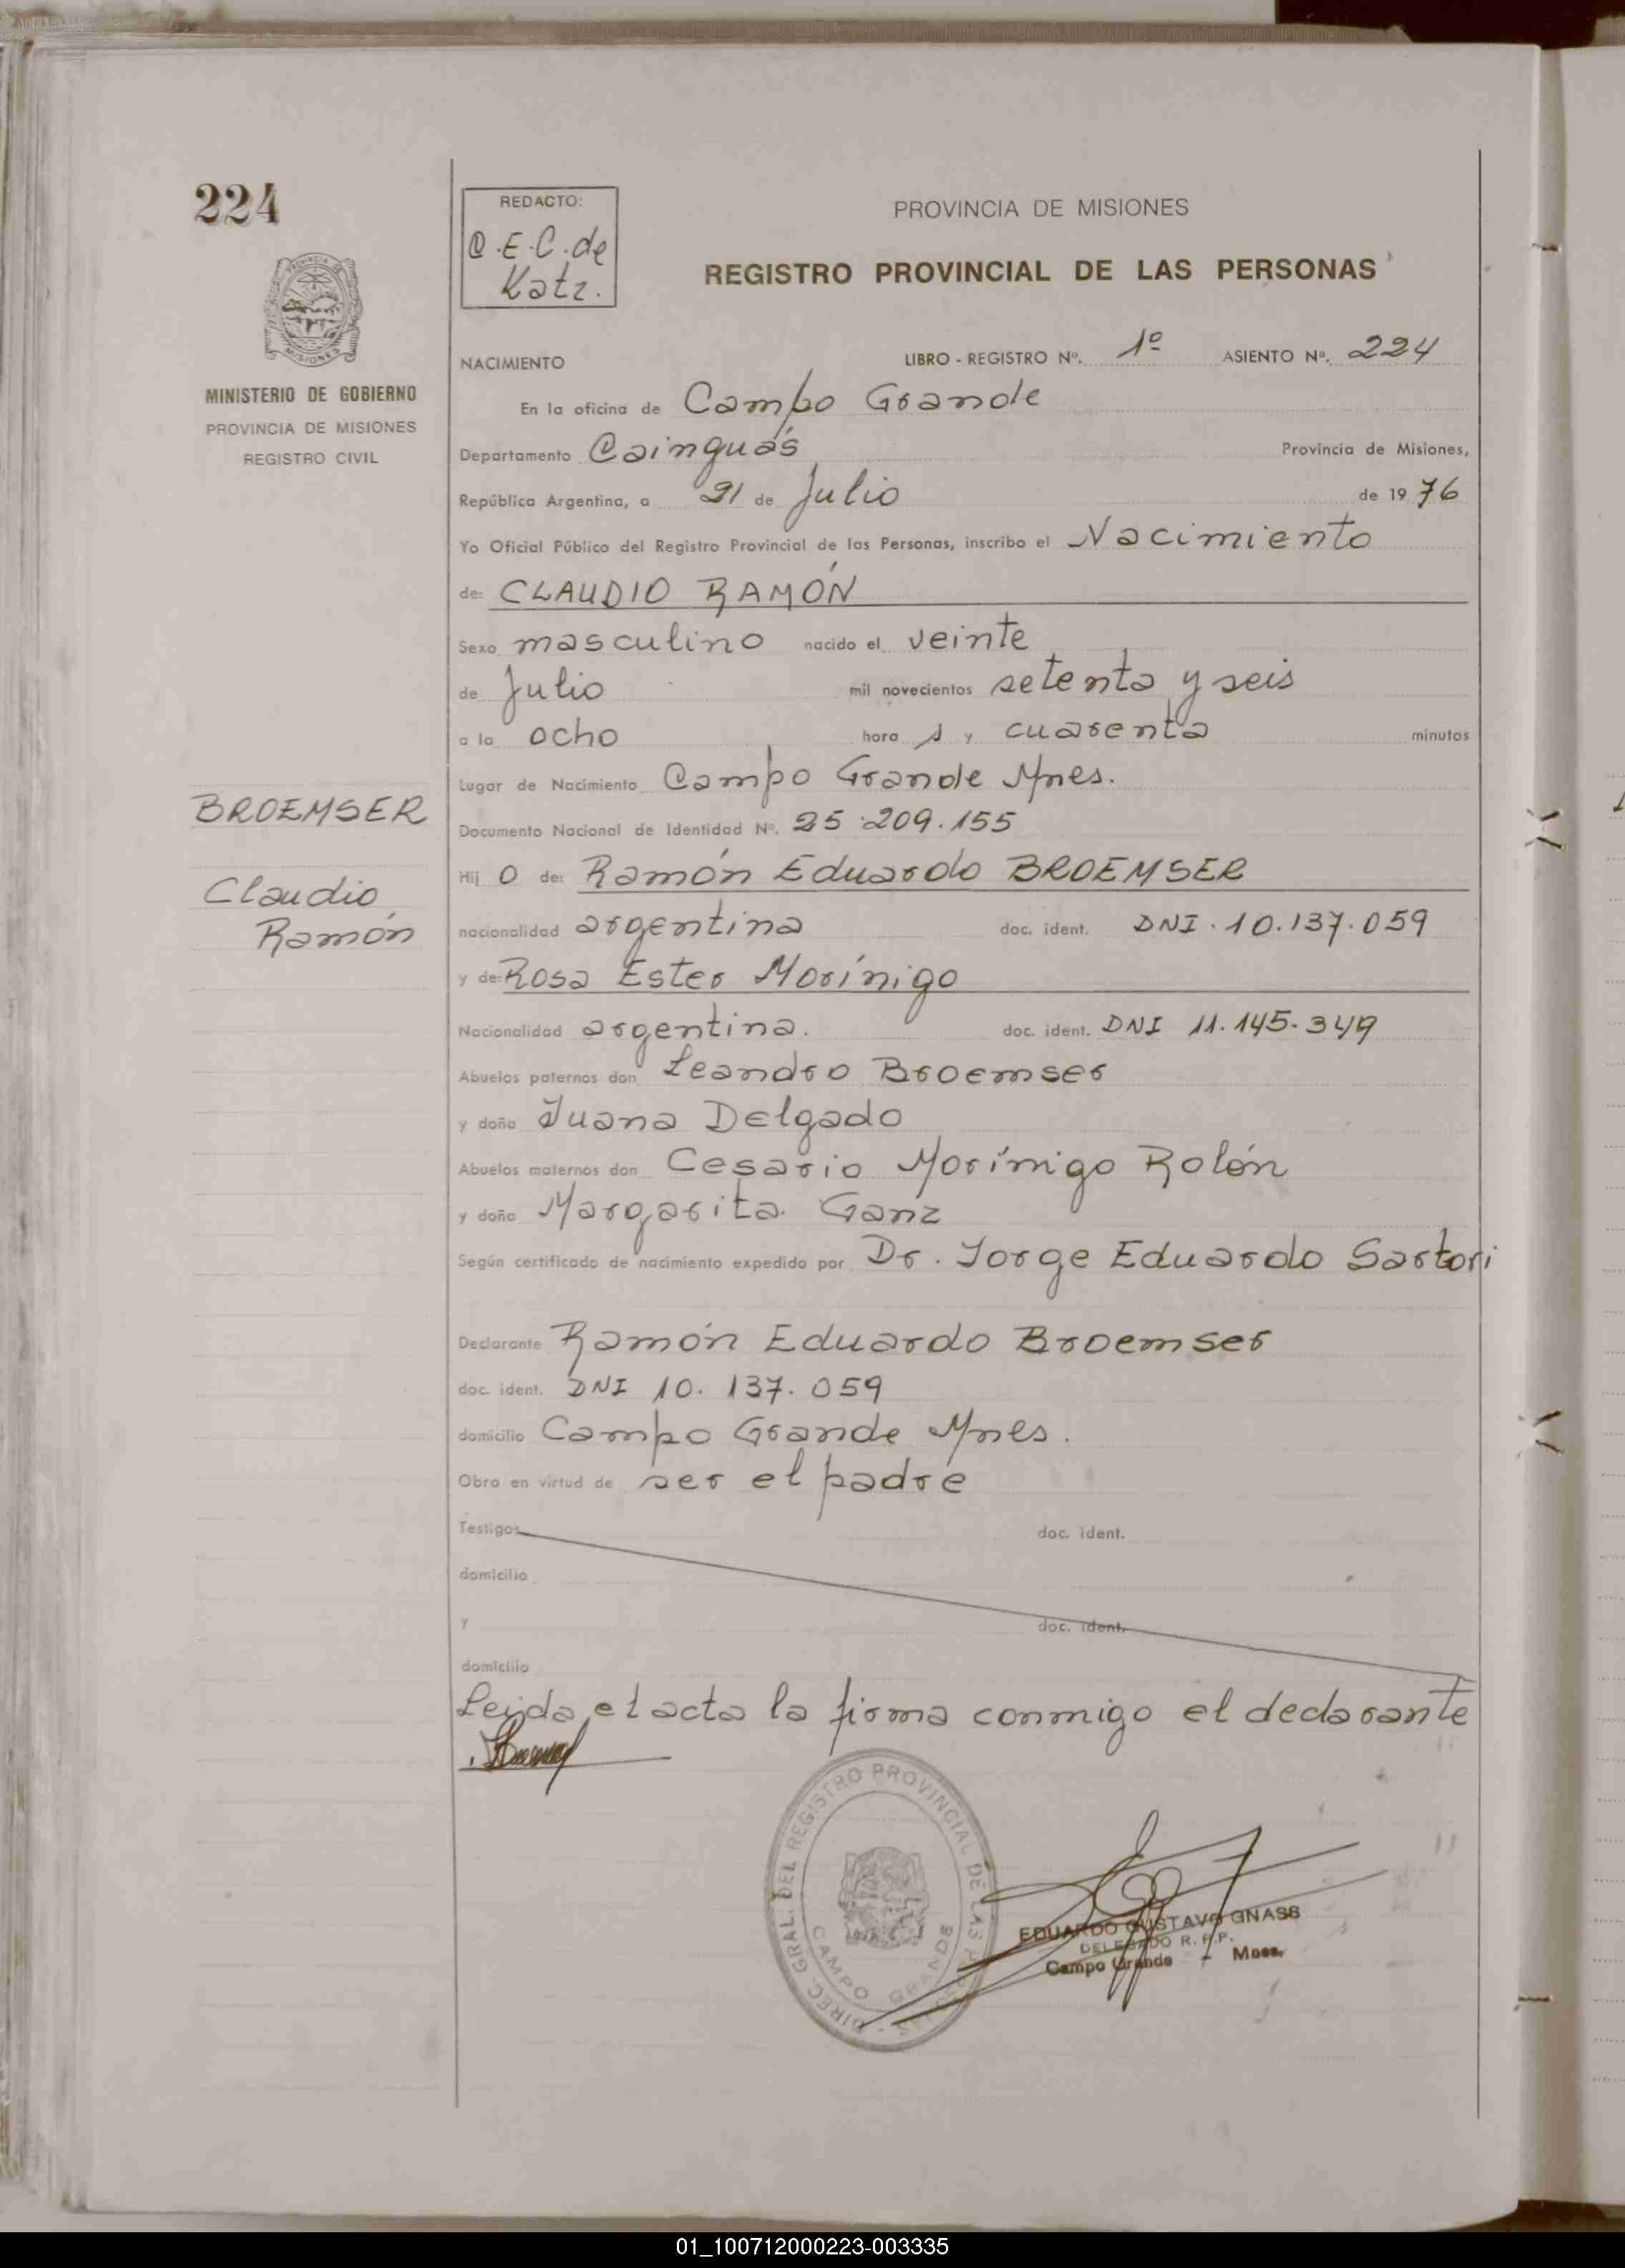 224
REDACTO:
C.E.C. de
Katz.
PROVINCIA DE MISIONES
REGISTRO PROVINCIAL DE LAS PERSONAS
PROVINCIA DE MISIONES
MINISTERIO DE GOBIERNO
PROVINCIA DE MISIONES
REGISTRO CIVIL
NACIMIENTO LIBRO - REGISTRO Nº. 1º ASIENTO Nº. 224
En la oficina de Campo Grande
Departamento Cainguás Provincia de Misiones,
República Argentina, a 21 de Julio de 1976
Yo Oficial Público del Registro Provincial de las Personas, inscribo el Nacimiento
de: CLAUDIO RAMÓN
Sexo masculino nacido el veinte
de Julio mil novecientos setenta y seis
a la ocho hora s y cuarenta minutos
Lugar de Nacimiento Campo Grande Mnes.
BROEMSER
Documento Nacional de Identidad Nº. 25.209.155
Hij o de: Ramón Eduardo BROEMSER
Claudio
Ramón
nacionalidad argentina doc. ident. DNI. 10.137.059
y de: Rosa Ester Morínigo
Nacionalidad argentina. doc. ident. DNI 11.145.349
Abuelos paternos don Leandro Broemser
y doña Juana Delgado
Abuelos maternos don Cesario Morínigo Rolón
y doña Margarita Ganz
Según certificado de nacimiento expedido por Dr. Jorge Eduardo Sartori
Declarante Ramón Eduardo Broemser
doc. ident. DNI 10.137.059
domicilio Campo Grande Mnes.
Obra en virtud de ser el padre
Testigos doc. ident.
domicilio
y doc. ident.
domicilio
Leida el acta la firma conmigo el declarante
DIREC. GRAL. DEL REGISTRO PROVINCIAL DE LAS
CAMPO GRANDE
EDUARDO GUSTAVO GNASS
DELEGADO R. P. P.
Campo Grande - Mnes.
01_100712000223-003335